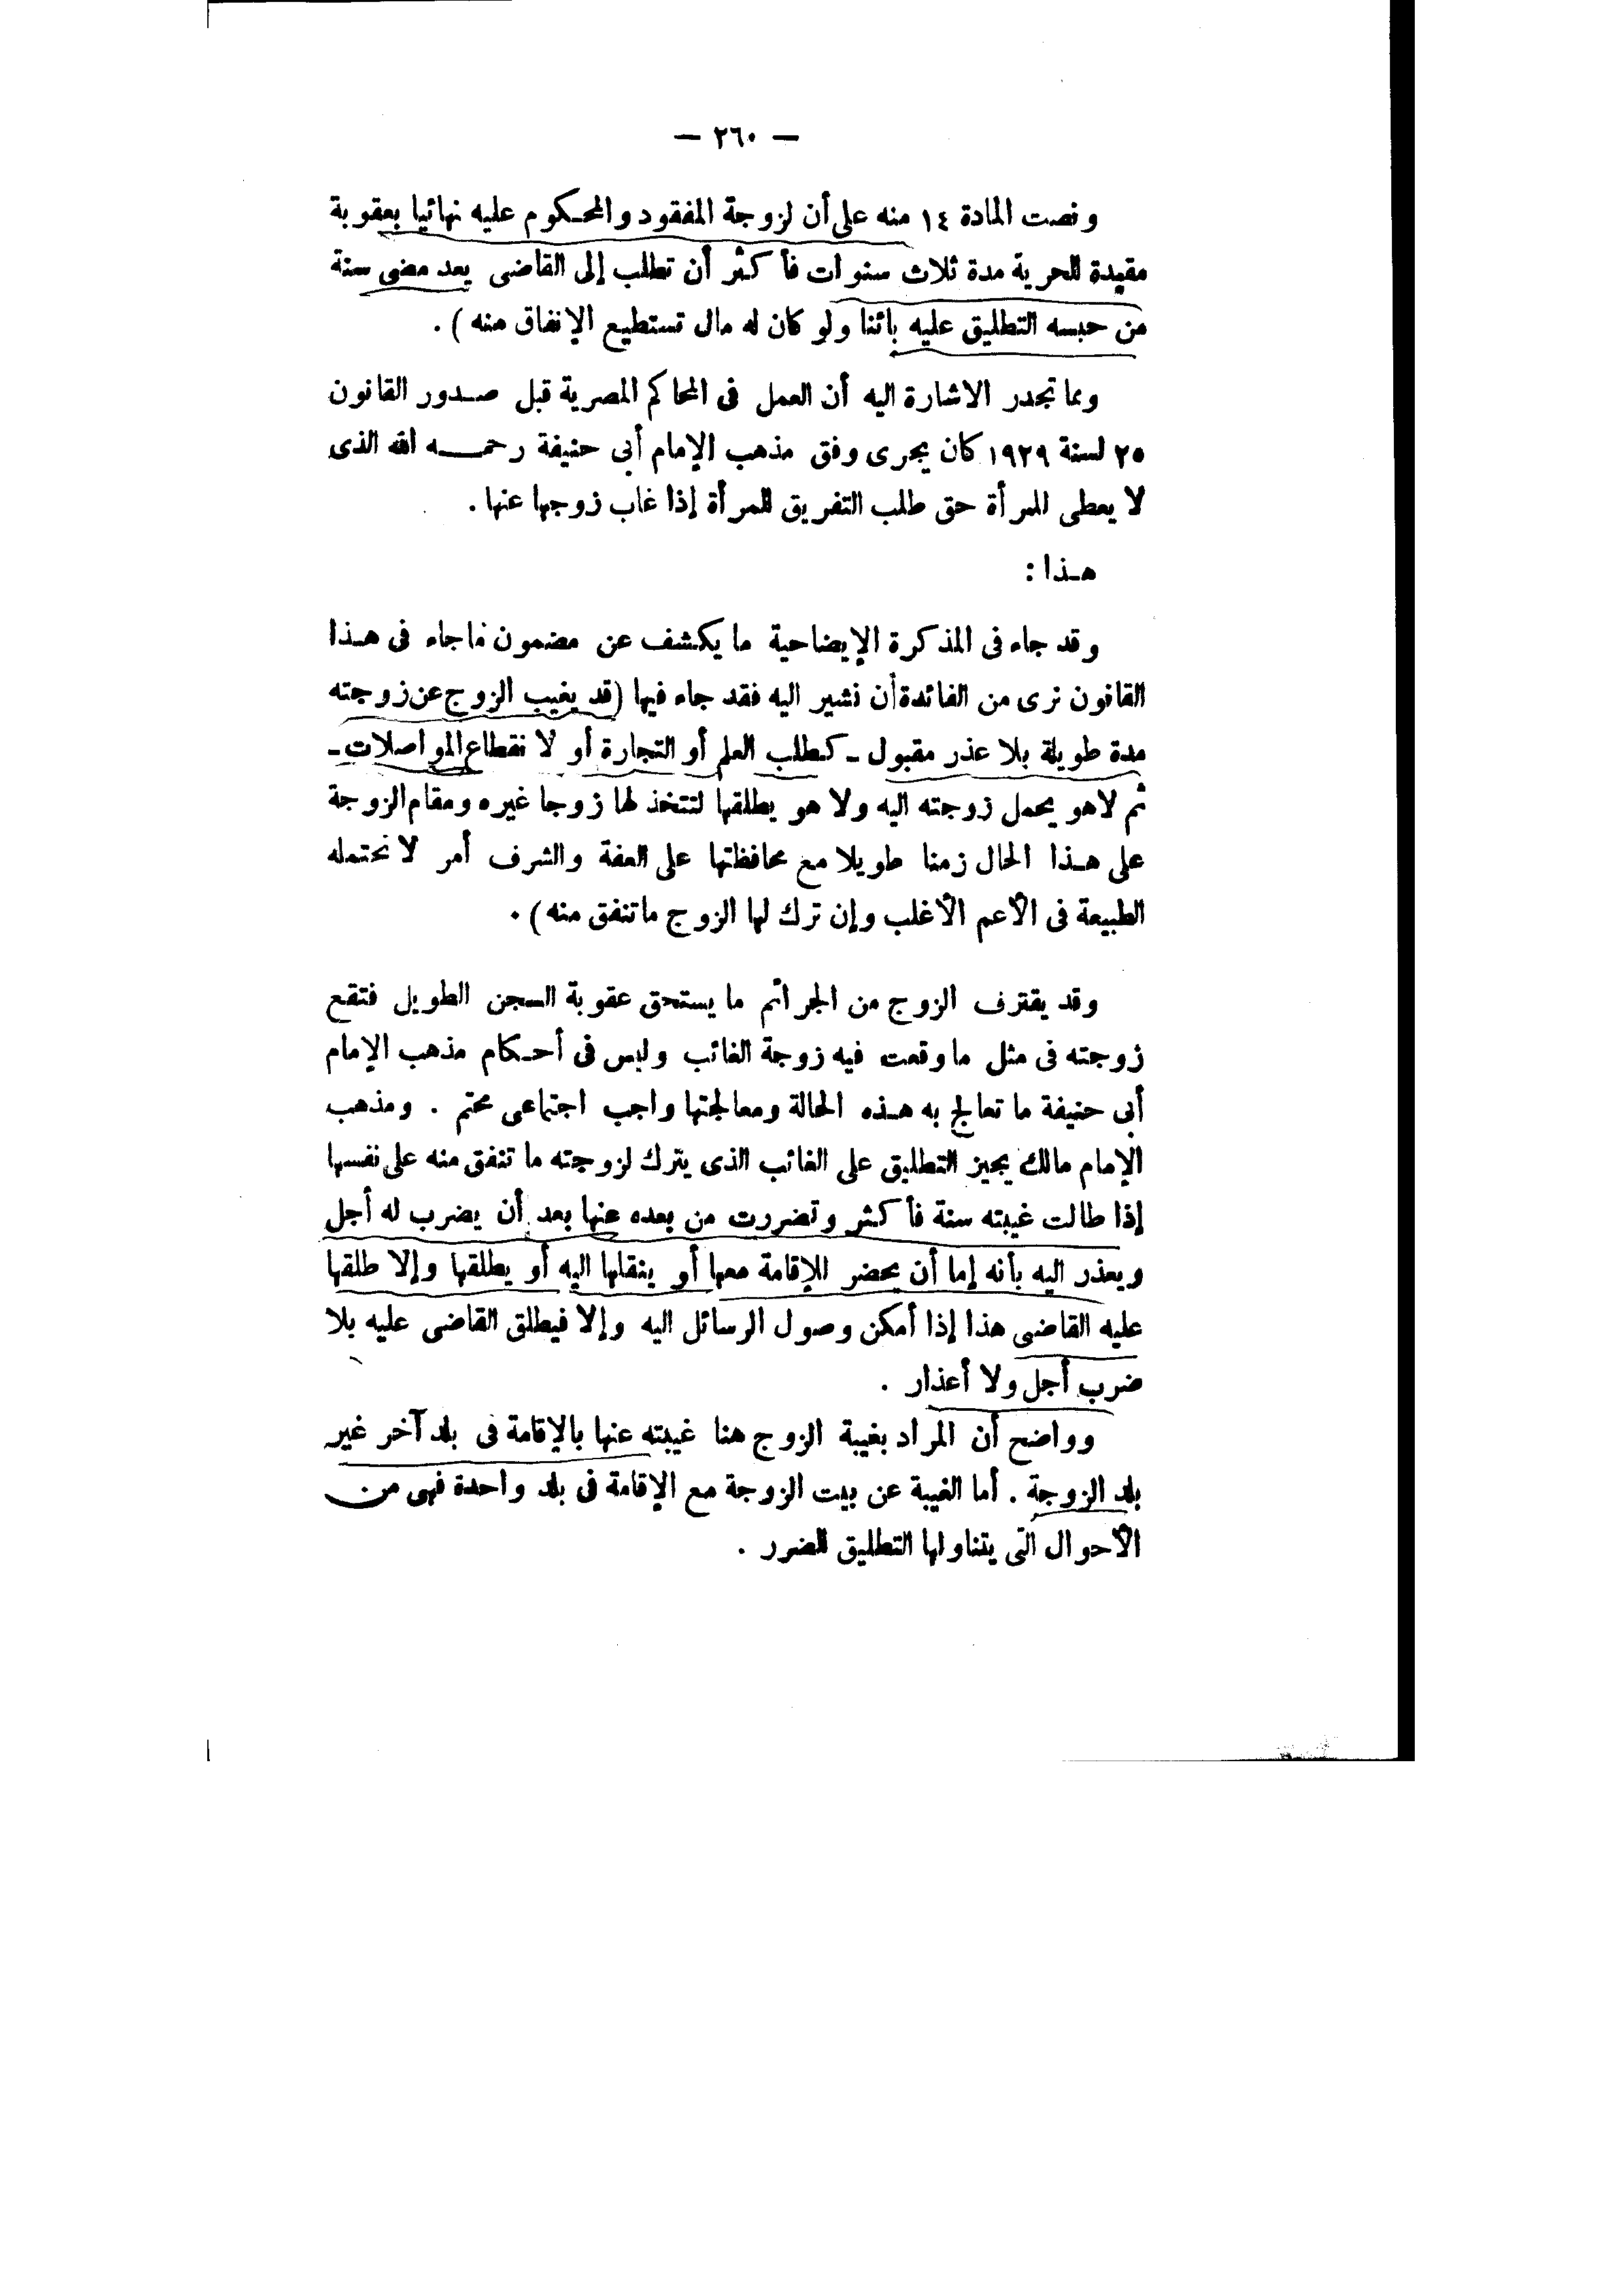 — ٢٦٠ —
ونصت المادة ١٤ منه على أن لزوجة المفقود والمحكوم عليه نهائيا بعقوبة
مقيدة للحرية مدة ثلاث سنوات فأكثر أن تطلب إلى القاضى بعد مضى سنة
من حبسه التطليق عليه بائنا ولو كان له مال تستطيع الإنفاق منه ) .
ومما تجدر الاشارة اليه أن العمل فى المحاكم المصرية قبل صدور القانون
٢٥ لسنة ١٩٢٩ كان يجرى وفق مذهب الإمام أبى حنيفة رحمه الله الذى
لا يعطى للمرأة حق طلب التفريق للمرأة إذا غاب زوجها عنها .
هذا :
وقد جاء فى المذكرة الإيضاحية ما يكشف عن مضمون ما جاء فى هذا
القانون نرى من الفائدة أن نشير اليه فقد جاء فيها (قد يغيب الزوج عن زوجته
مدة طويلة بلا عذر مقبول ـ كطلب العلم أو التجارة أو لانقطاع المواصلات ـ
ثم لا هو يحمل زوجته اليه ولا هو يطلقها لتتخذ لها زوجا غيره ومقام الزوجة
على هذا الحال زمنا طويلا مع محافظتها على العفة والشرف أمر لا تحتمله
الطبيعة فى الأعم الأغلب وإن ترك لها الزوج ما تنفق منه ) .
وقد يقترف الزوج من الجرائم ما يستحق عقوبة السجن الطويل فتقع
زوجته فى مثل ما وقعت فيه زوجة الغائب وليس فى أحكام مذهب الإمام
أبى حنيفة ما تعالج به هذه الحالة ومعالجتها واجب اجتماعى محتم . ومذهب
الإمام مالك يجيز التطليق على الغائب الذى يترك لزوجته ما تنفق منه على نفسها
إذا طالت غيبته سنة فأكثر وتضررت من بعده عنها بعد أن يضرب له أجل
ويعذر اليه بأنه إما أن يحضر للإقامة معها أو ينقلها اليه أو يطلقها وإلا طلقها
عليه القاضى هذا إذا أمكن وصول الرسائل اليه وإلا فيطلق القاضى عليه بلا
ضرب أجل ولا أعذار .
وواضح أن المراد بغيبة الزوج هنا غيبته عنها بالإقامة فى بلد آخر غير
بلد الزوجة . أما الغيبة عن بيت الزوجة مع الإقامة فى بلد واحدة فهى من
الأحوال التى يتناولها التطليق للضرر .